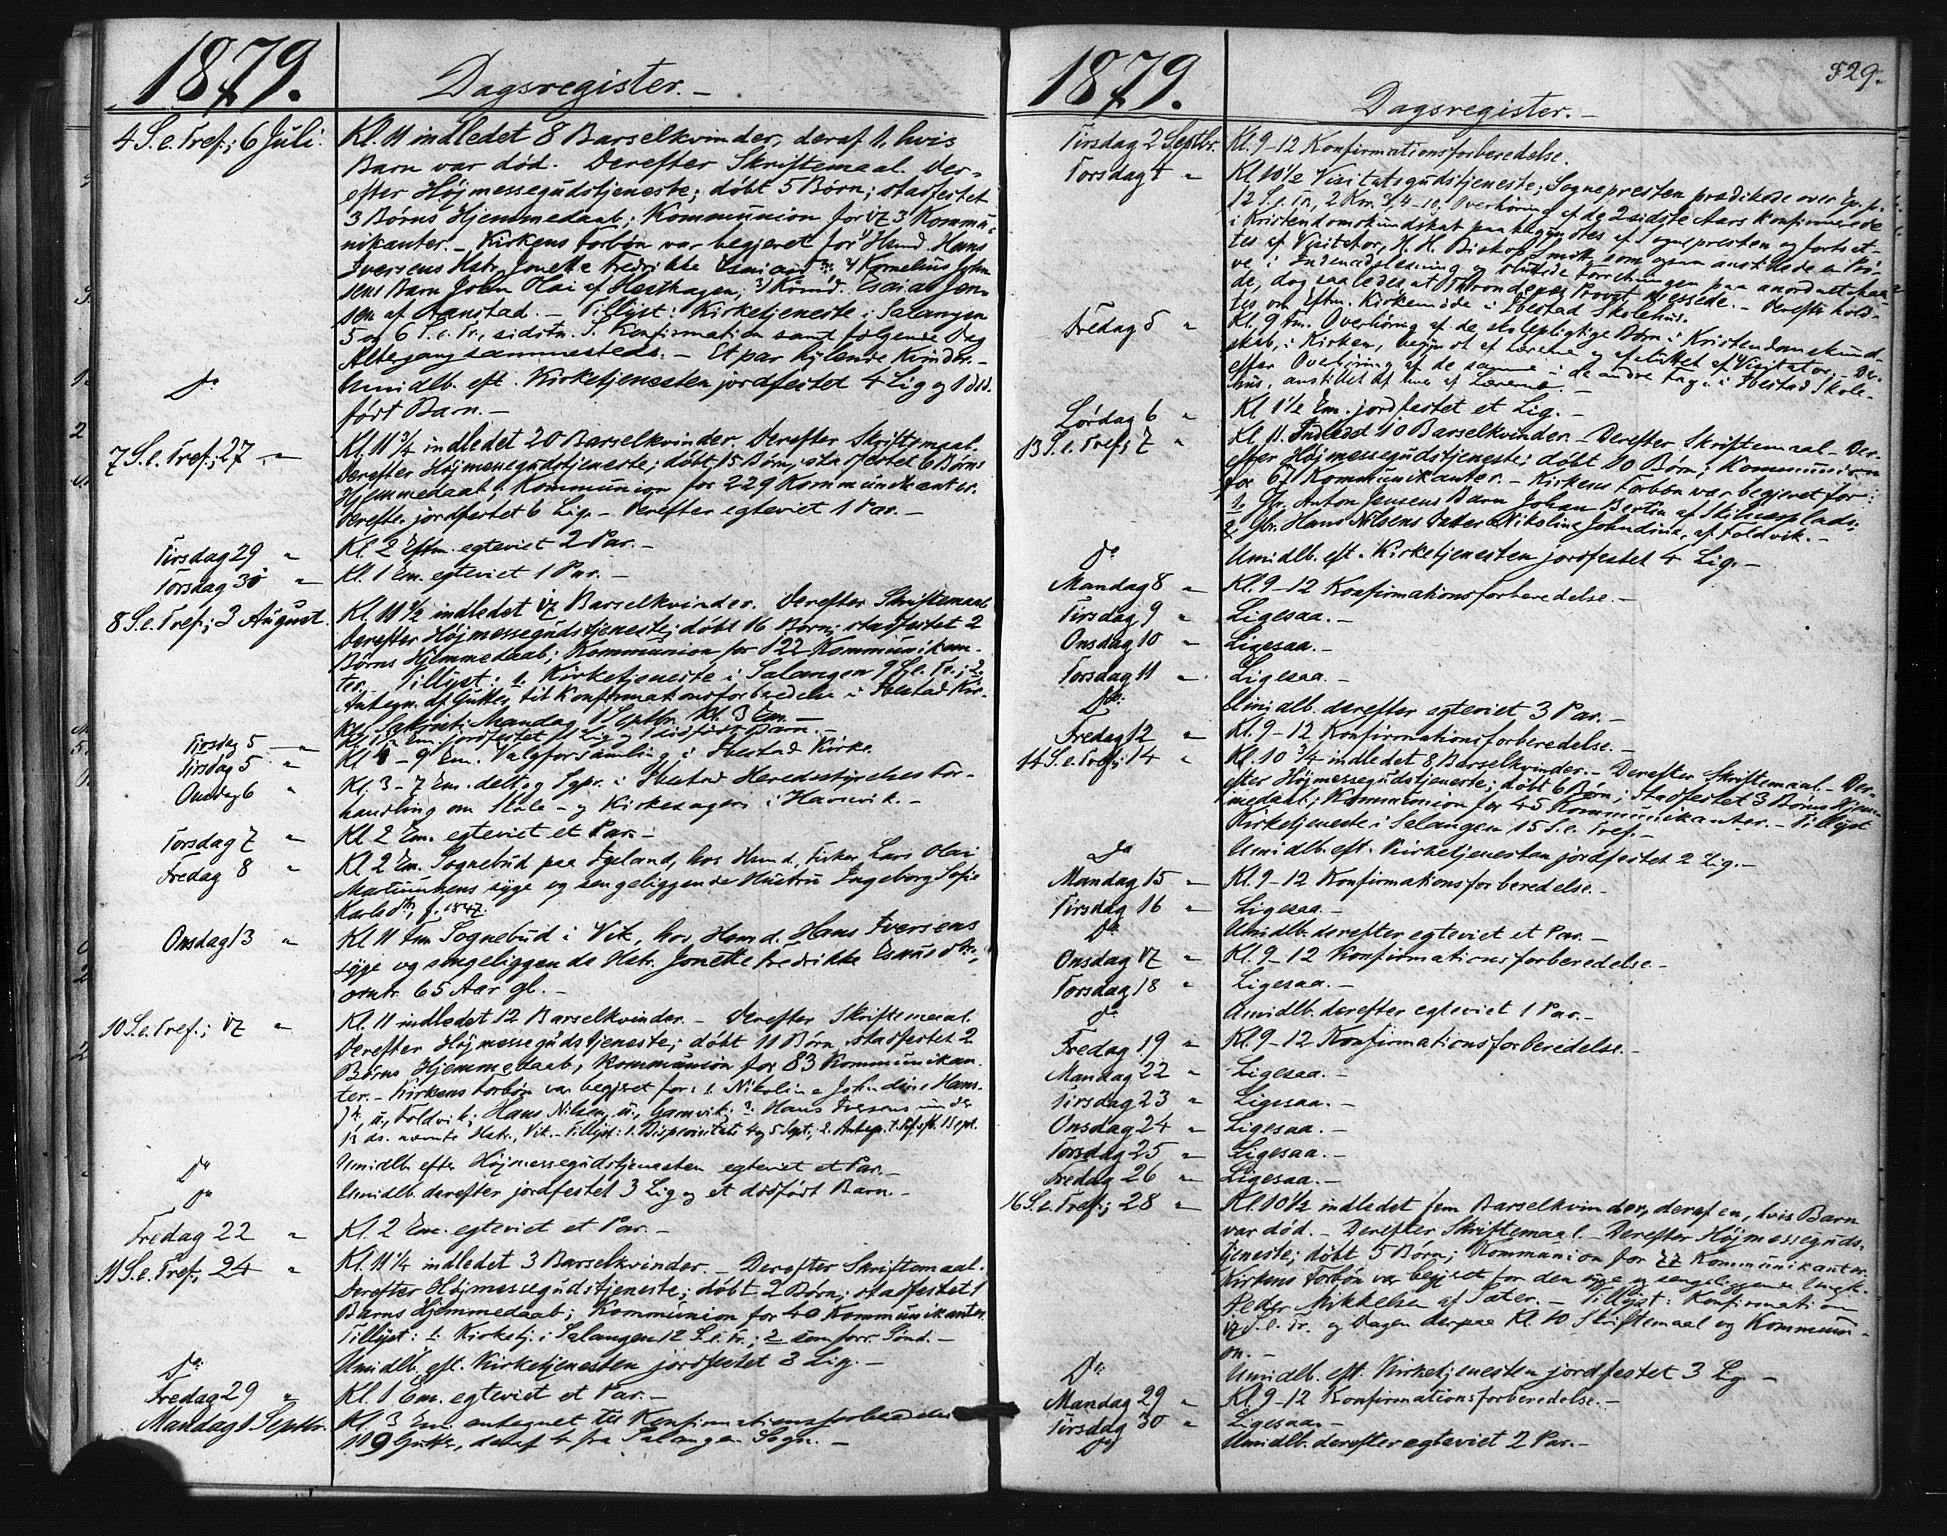 1879.
Dagsregister.-
4 S. e. Tref.; 6 Juli. Kl. 11 indledet 8 Barselkvinder, deraf 1, hvis
Barn var død. Derefter Skriftemaal. Der-
efter Højmessegudstjeneste; døbt 5 Børn; stadfestet
3 Børns Hjemmedaab; Kommunion for 173 Kommu-
nikanter.- Kirkens Forbøn var begjeret for 1) Hmd. Hans
Iversens Hstr. Jonette Fredrikke 2) Kornelius John
sens Barn John Olai af 3) Esaias Jen-
sen af Aanstad.- Tillyst: Kirketjeneste i Salangen
5 og 6 S. e. Tr., sidstn. S. Konfirmation samt følgende Dag
Altergang sammesteds.- Et par hylende Kvinder.-
Do Umidlb. eft. Kirketjenesten jordfestet 4 Lig og 1 död-
født Barn.-
7 S. e. Tref.; 27 " Kl. 11 3/4 indledet 20 Barselkvinder. Derefter Skriftemaal.
Derefter Højmessegudstjeneste; døbt 15 Børn; stadfestet 6 Børns
Hjemmedaab; Kommunion for 229 Kommunikanter.
Derefter jordfestet 6 Lig.- Derefter egteviet 1 Par.-
Tirsdag 29 " Kl. 2 Eftm. egteviet 2 Par.-
Torsdag 30 " Kl. 1 Em. egteviet 1 Par.-
8 S. e. Tref.; 3 August. Kl. 11 1/2 indledet 17 Barselkvinder. Derefter Skriftemaal.
Derefter Højmessegudstjeneste; döbt 16 Børn; stadfestet 2
Børns Hjemmedaab; Kommunion for 122 Kommunikan-
ter. Tillyst: 1. Kirketjeneste i Salangen 9 S. e. Tr.; 2.
Antegn. af Gutter til Konfirmationsforberedelse i Ibestad Kir-
kes Sakristi Mandag 1 Septbr. Kl. 3 Em.-
Tirsdag 5 " Em. jordfestet Lig og 1 dödfödt Barn.-
Tirsdag 5 " Kl. - 9 Em. Valgforsamling i Ibestad Kirke.
Onsdag 6 " Kl. 3 - 7 Em. deltog Sgpr. i Ibestad Heredsstyrelses For-
handling om Skole- og Kirkesager i Hamvik.-
Torsdag 7 " Kl. 2 Em. egteviet et Par.-
Fredag 8 " Kl. 2 Em. Sognebud paa Igeland, hos Hmd., Fisker Lars Olai
syge og sengeliggende Hustru Ingeborg Sofie
Karlsdtr., f. 1847.
Onsdag 13 " Kl. 11 Fm. Sognebud i Vik, hos Hmd. Hans Iversens
syge og sengeliggende Hstr. Jonette Fredrikke Esaiasdtr.,
omtr. 65 Aar gl.-
10 S. e. Tref.; 17 " Kl. 11 indledet 12 Barselkvinder.- Derefter Skriftemaal.
Derefter Højmessegudstjeneste; döbt 11 Børn, stadfestet 2
Børns Hjemmedaab; Kommunion for 83 Kommunikan-
ter.- Kirkens Forbøn var begjeret for: 1. Nikoline Johndine Hans-
dtr., Foldvik; Hans Nilsen, Gamvik; Hans Iversens under
13 ds. nævnte Hstr., Vik.- Tillyst: 1. Bispevisitats 4 og 5 Sept.; 2. Antegn.
Do Umidlb. efter Højmessegudstjenesten egteviet et Par.-
Do Umidlb. derefter jordfestet 3 Lig og et dödfödt Barn.-
Fredag 22 " Kl. 2 Em. egteviet et Par.-
11 S. e. Tref.; 24 " Kl. 11 1/4 indledet 3 Barselkvinder.- Derefter Skriftemaal.
Derefter Højmessegudstjeneste; döbt 2 Børn; stadfestet 1
Barns Hjemmedaab; Kommunion for 40 Kommunikanter.
Tillyst: 1. Kirketj. i Salangen 12 S. e. Tr.; 2 som forr. Sönd.-
Do Umidlb. eft. Kirketjenesten jordfestet 3 Lig.-
Fredag 29 " Kl. 1 Em. egteviet et Par.-
Mandag 1 Septbr. Kl. 3 Em. antegnet til Konfirmationsforberedelse
119 Gutter, deraf 4 fra Salangen Sogn.-
1879.
529.
Dagsregister.-
Tirsdag 2 Septbr. Kl. 9-12 Konfirmationsforberedelse.
Torsdag 4 " Kl. 10 1/2 Visitatsgudstjeneste; Sognepresten prædikede over Ep. p.
12 S. e. Tr., 2 Kor. 3, 4-10. Overhöring af de 2 sidste Aars konfirmerede
i Kristendomskundskab paabegyndtes af Sognepresten og fortsat-
tes af Visitator, H. H. Biskop Smitt, som ogsaa anstillede en Prö-
ve i Indenadslæsning og sluttede Forretningen paa anordnet Maa-
de, dog saaledes at Trondenes Provst messede.- Derefter hold-
tes om Eftm. Kirkemöde i Ibestad Skolehus.
Fredag 5 " Kl. 9 Fm. Overhöring af de skolepligtige Børn i Kristendomskund-
skab, i Kirken, begyndt af Lærerne og afsluttet af Visitator.- Der-
efter Overhöring af de samme i de andre Fag i Ibestad Skole-
hus, anstillet af hver af Lærerne.-
Lørdag 6 " Kl. 1 1/2 Em. jordfestet et Lig.-
13 S. e. Tref.; 7 " Kl. 11. Indledet 10 Barselkvinder.- Derefter Skriftemaal.- Der-
efter Højmessegudstjeneste; döbt 10 Børn; Kommunion
for 67 Kommunikanter.- Kirkens Forbön var begjeret for:
1, Gbr. Anton Jensens Barn Johan Bertin af
2, Gbr. Hans Nilsens Datter Nikoline Johndine, af Foldvik.-
Do Umidlb. eft. Kirketjenesten jordfestet 4 Lig.-
Mandag 8 " Kl. 9-12 Konfirmationsforberedelse.-
Tirsdag 9 " Ligesaa.-
Onsdag 10 " Ligesaa.-
Torsdag 11 " Ligesaa.-
Do Umidlb. derefter egteviet 3 Par.-
Fredag 12 " Kl. 9-12 Konfirmationsforberedelse.-
14 S. e. Tref.; 14 " Kl. 10 3/4 indledet 8 Barselkvinder.- Derefter Skriftemaal.- Der-
efter Højmessegudstjeneste; döbt 6 Børn; Stadfestet 3 Børns Hjem-
medaab; Kommunion for 45 Kommunikanter.- Tillyst
Kirketjeneste i Salangen 15 S. e. Tref.-
Do Umidlb. eft. Kirketjenesten jordfestet 2 Lig.-
Mandag 15 " Kl. 9-12 Konfirmationsforberedelse.-
Tirsdag 16 " Ligesaa.-
Do Umidlb. derefter egteviet et Par.-
Onsdag 17 " Kl. 9-12 Konfirmationsforberedelse.-
Torsdag 18 " Ligesaa.-
Do Umidlb. derefter egteviet 1 Par.-
Fredag 19 " Kl. 9-12 Konfirmationsforberedelse.-
Mandag 22 " Ligesaa.-
Tirsdag 23 " Ligesaa.-
Onsdag 24 " Ligesaa.-
Torsdag 25 " Ligesaa.-
Fredag 26 " Ligesaa.-
16 S. e. Tref.; 28 " Kl. 10 1/2 indledet fem Barselkvinder, deraf en, hvis Barn
var död.- Derefter Skriftemaal.- Derefter Højmesseguds-
tjeneste; döbt 5 Børn; Kommunion for 77 Kommunikanter.
Kirkens Forbön var begjeret for den syge og sengeliggende Ungk.
Peder Mikkelsen af Sæter.- Tillyst: Konfirmation
17 S. e. Tr. og Dagen derpaa Kl. 10 Skriftemaal og Kommuni-
on.-
Do Umidlb. eft. Kirketjenesten jordfestet 3 Lig.-
Mandag 29 " Kl. 9-12 Konfirmationsforberedelse.-
Tirsdag 30 " Ligesaa.-
Do Umidlb. derefter egteviet 2 Par.-